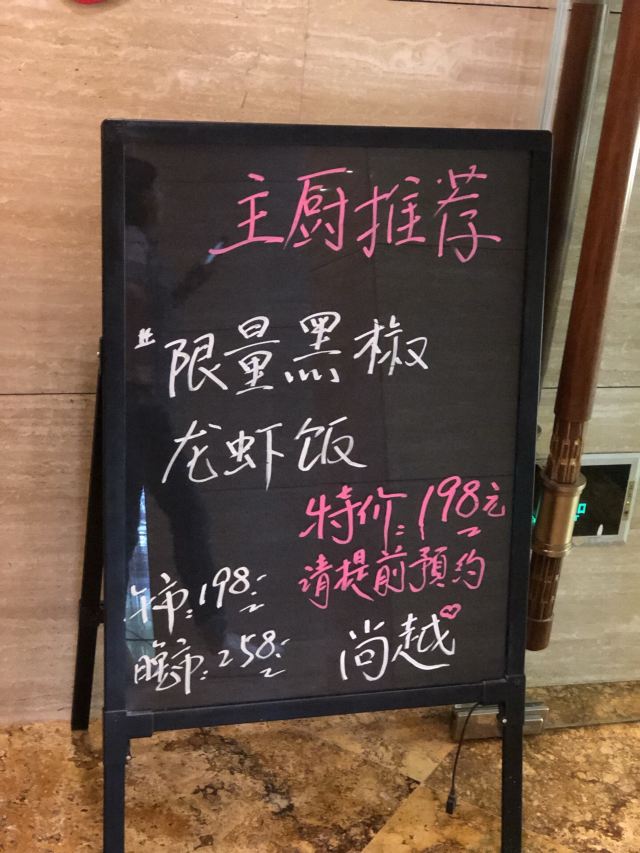 主厨推荐
限量黑椒
龙虾饭
特价:198元
请提前預约
午市:198
晚市:258
尚越